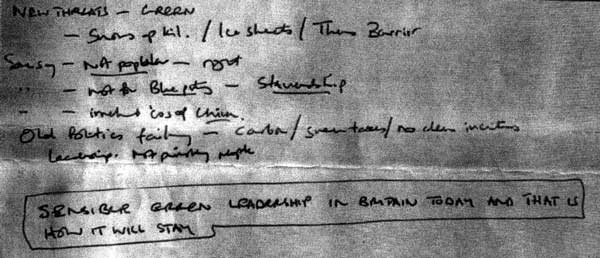 NEW THREATS – GREEN
– Snows of Kil. / Ice sheets / Thames Barrier
Saying – Not popular – right
" – not for Blue pots – Stewardship
" – irrelevant 'cos of China.
Old Politics failing – carbon / green taxes / no clean incentives
leadership. Not people
SENSIBLE GREEN LEADERSHIP IN BRITAIN TODAY AND THAT IS
HOW IT WILL STAY